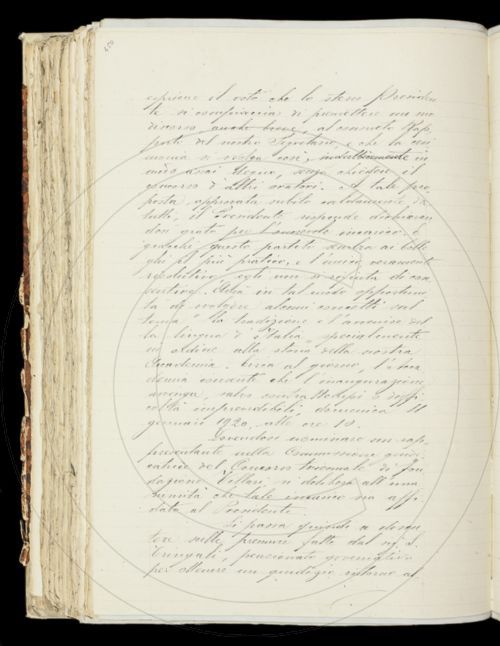 450
esprime il voto che lo stesso Presiden-
te si compiaccia di premettere un suo
discorso, anche breve, al consueto Rap-
porto del nostro Segretario, e che la ceri-
monia si svolga così, in
modo assai degno, senza chiedere il
concorso d'altri oratori. A tale pro-
posta, approvata subito caldamente da
tutti, il Presidente risponde dichiaran-
dosi grato per l'onorevole incarico, e
giacché questo partito sembra ai colle-
ghi il più pratico, e l'unico veramente
risolutivo, egli non si rifiuta di
Avrà in tal modo opportuni-
tà di svolgere alcuni concetti sul
tema "la tradizione e l'avvenire del-
la lingua d'Italia, specialmente
in ordine alla storia della nostra
Accademia. Circa al giorno, l'Acca-
demia consente che l'inaugurazione
avvenga, salvo contrattempi e diffi-
coltà imprevedibili, domenica 11
gennaio 1920, alle ore 10.
Dovendosi nominare un rap-
presentante nella Commissione giudi-
catrice del Concorso triennale di fon-
dazione Villari, si delibera all'una-
nimità che tale incarico sia affi-
dato al Presidente.
Si passa quindi a discu-
tere sulle premure fatte dal sig. S.
Tringali, pensionato governativo
per ottenere un giudizio intorno al